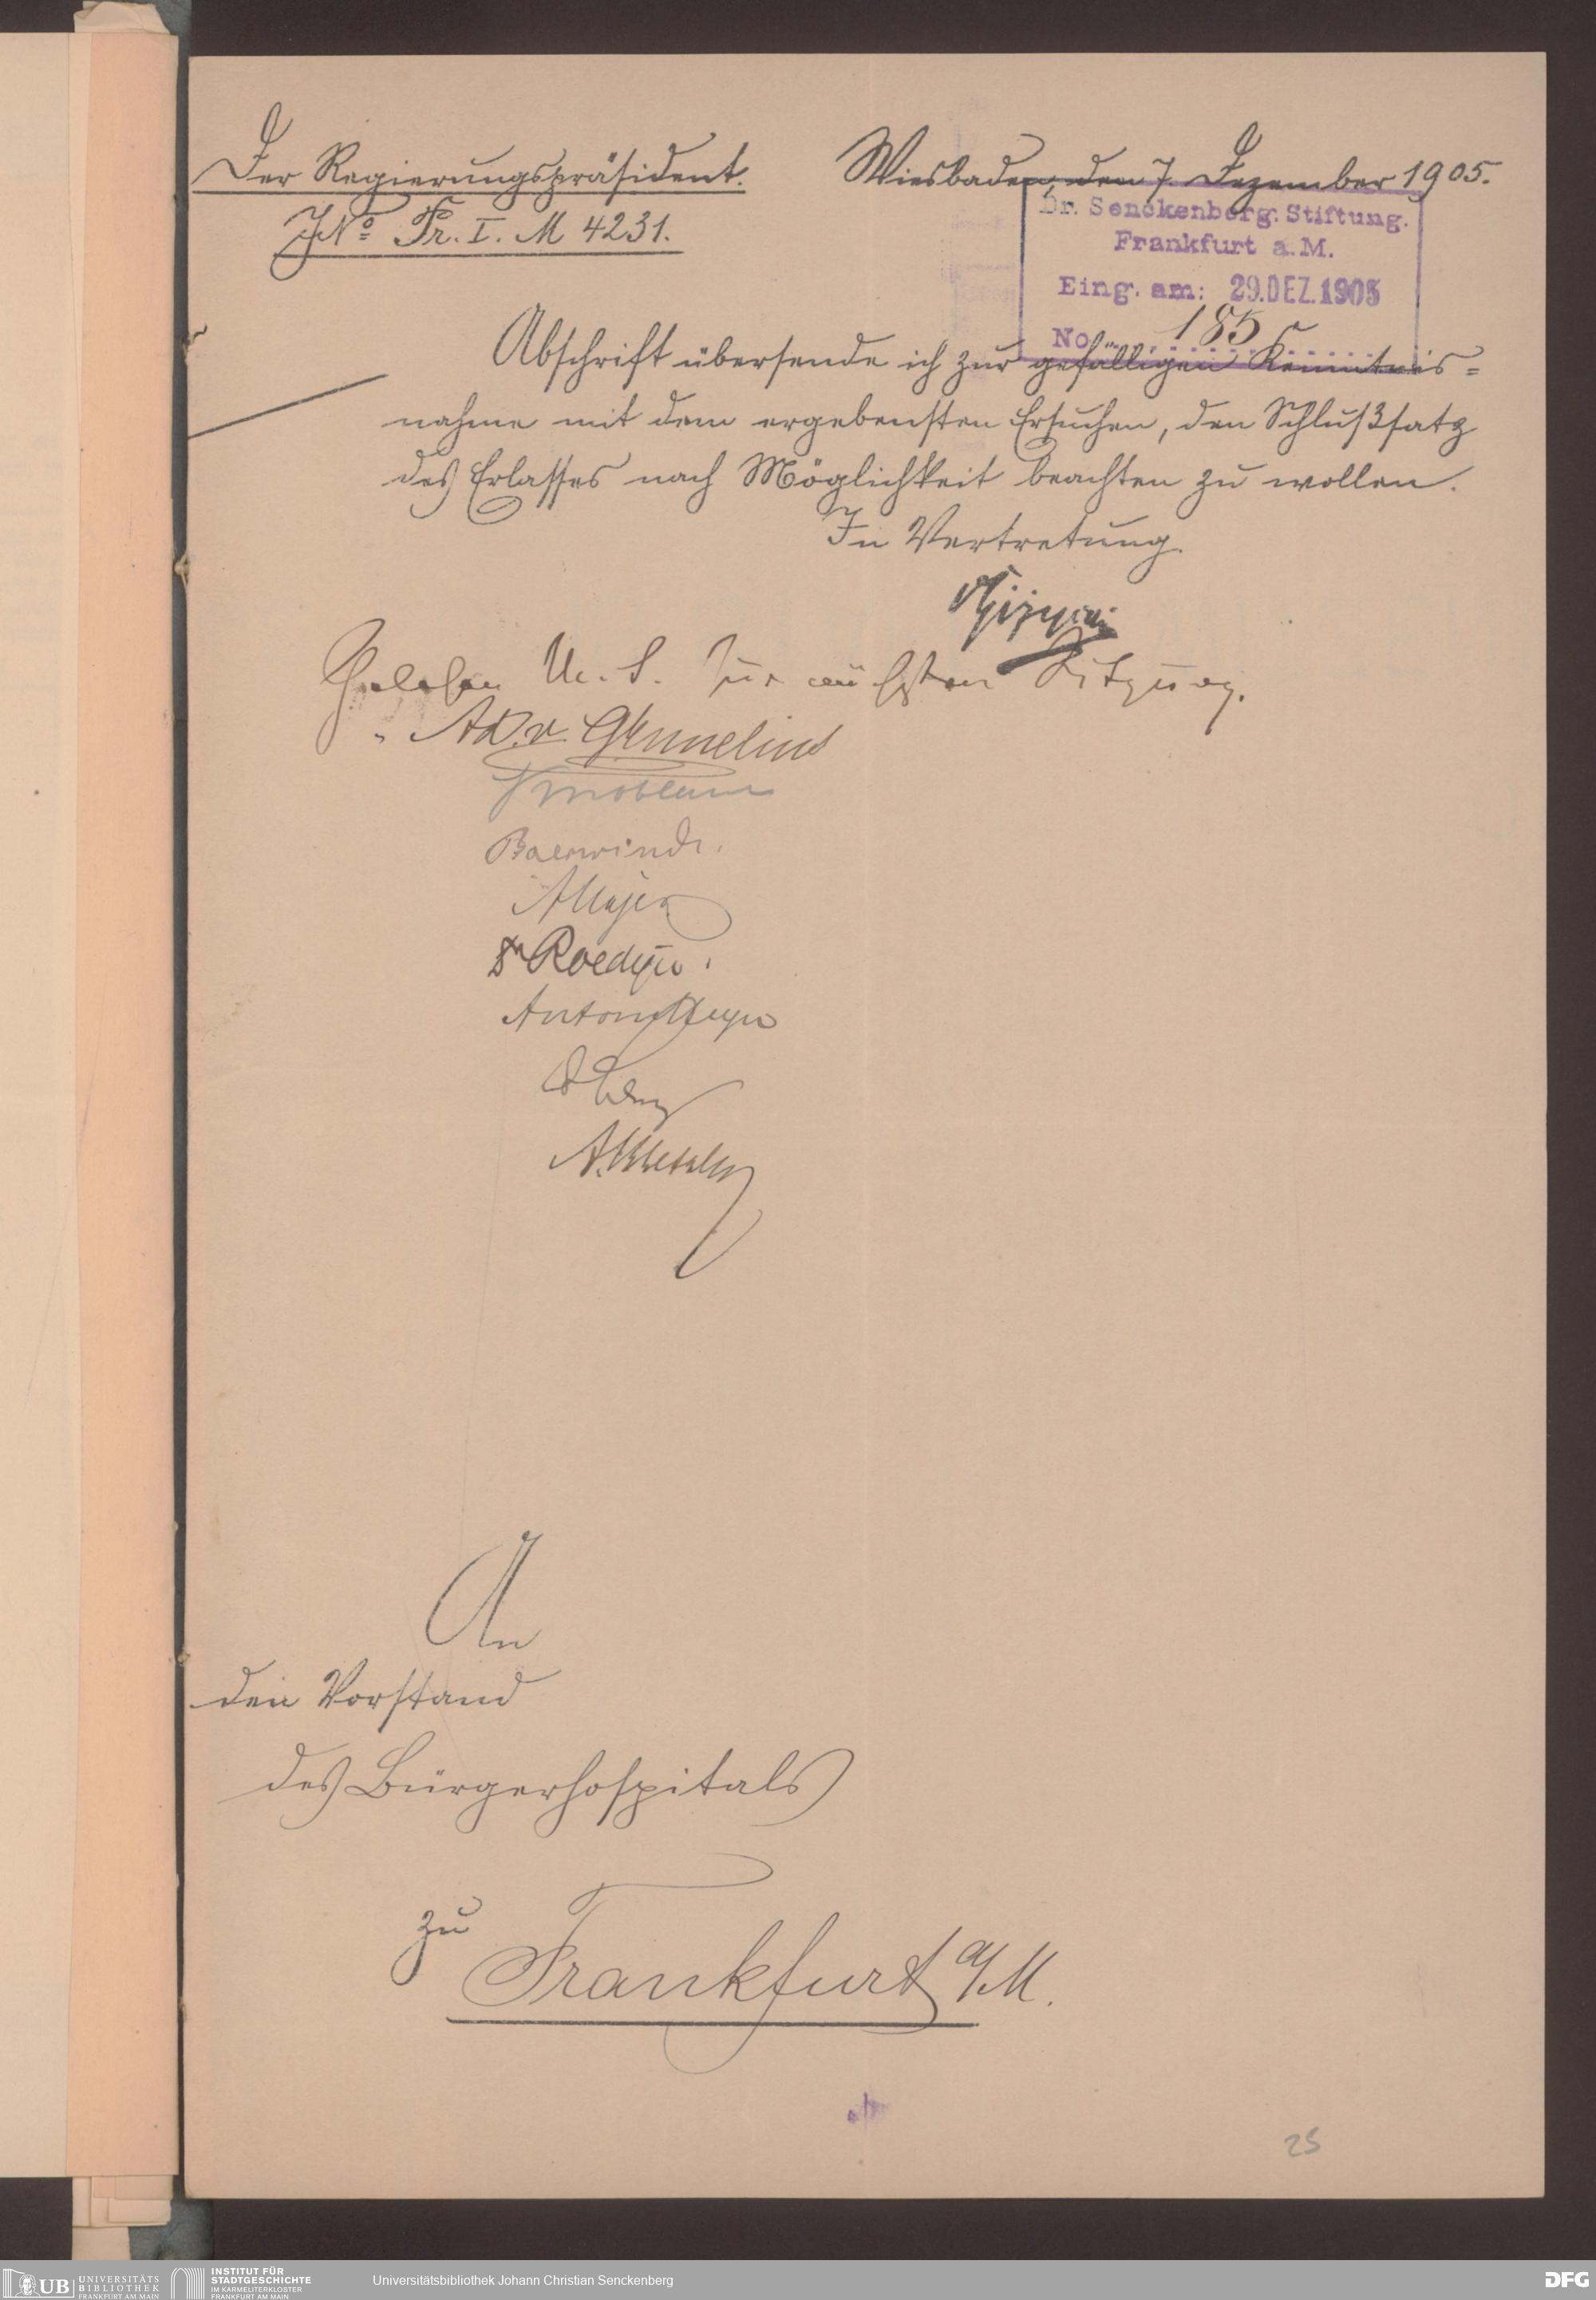 Der Regierungspräsident.
JNo Pr. I. M 4231.
Wiesbaden, den 7. Dezember 1905.
Dr. Senckenberg. Stiftung.
Frankfurt a. M.
Eing. am: 29. DEZ. 1905
No. 185
Abschrift übersende ich zur gefälligen Kenntnis=
nahme mit dem ergebensten Ersuchen, den Schlußsatz
des Erlasses nach Möglichkeit beachten zu wollen.
In Vertretung.
Gizycki
Gelesen Zur nächsten Sitzung.
Knoblauch
Baerwindt.
A Majer
Dr Roediger.
Anton Heyer
A. Metzler
An
den Vorstand
des Bürgerhospitals
zu
Frankfurt a/M.
25
UB UNIVERSITÄTS
BIBLIOTHEK
FRANKFURT AM MAIN
INSTITUT FÜR
STADTGESCHICHTE
IM KARMELITERKLOSTER
FRANKFURT AM MAIN
Universitätsbibliothek Johann Christian Senckenberg
DFG